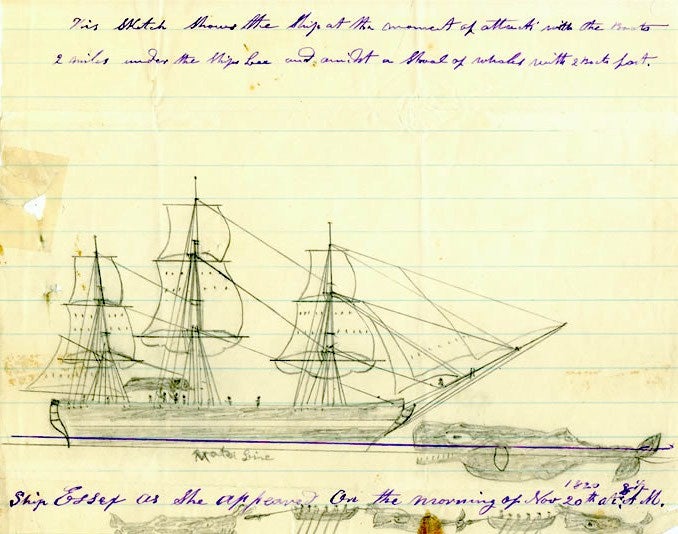 This Sketch Shows the Ship at the moment of attack with the Boats
2 miles under the Ships Lee and amidst a Shoal of whales with 2 Boats fast.
Water Line
Ship Essex as She appeared On the morning of Nov 20th 1820 at 8 A.M.